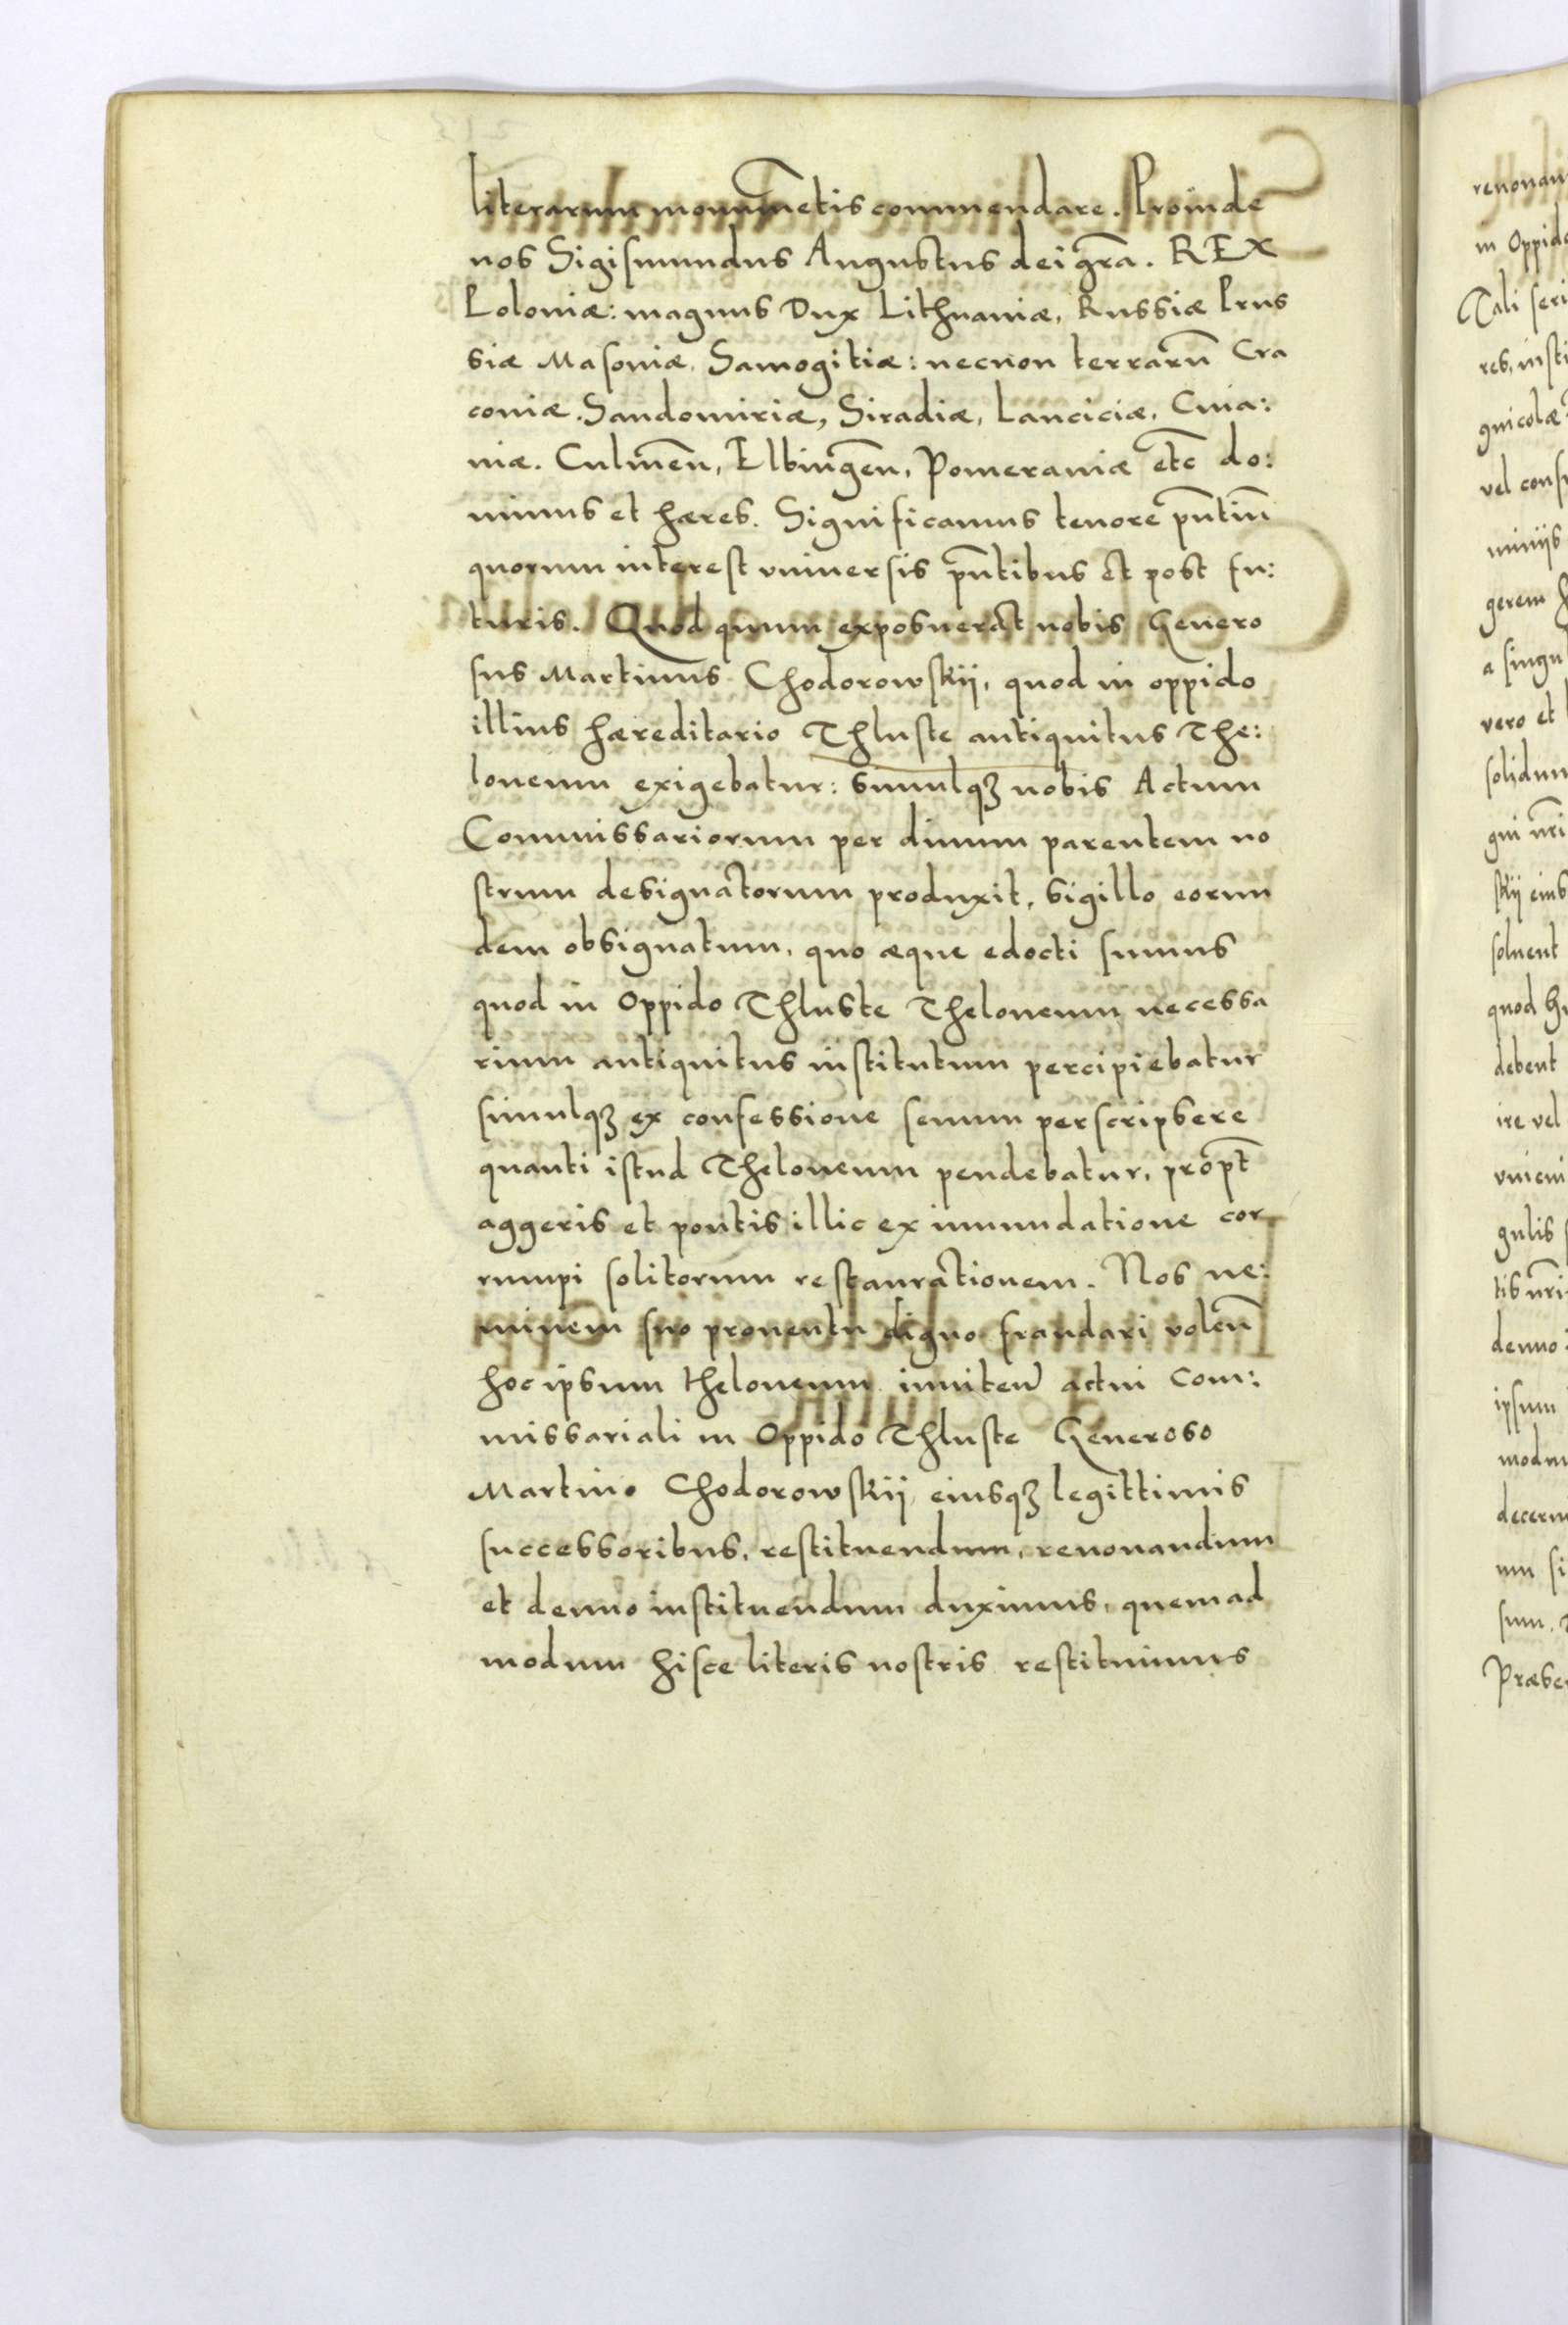 literarum monumētis commendare. Proinde
nos Sigismundus Augustus dei gr̄a. REX
Poloniæ: magnus Dux Lithuaniæ, Russiæ Prus
siæ Masoviæ, Samogitiæ: necnon terrarū Cra
coviæ. Sandomiriæ, Siradiæ, Lanciciæ, Cuia:
viæ. Culmēn, Elbingēn, Pomeraniæ etc̄ do:
minus et hæres. Significamus tenore p̄ntiū
quorum interest vniversis p̄ntibus et post fu:
turis. Quod quum exposuerat nobis Genero
sus Martinus Chodorowskij, quod in oppido
illius hæreditario Thluste antiquitus The:
loneum exigebatur: simulqꝫ nobis Actum
Commissariorum per divum parentem no
strum designatorum produxit, sigillo eorun
dem obsignatum, quo æque edocti sumus
quod in Oppido Thluste Theloneum necessa
rium antiquitus institutum percipiebatur
simulqꝫ ex confessione senum perscripsere
quanti istud Theloneum pendebatur, propt̄
aggeris et pontis illic ex inundatione cor
rumpi solitorum restaurationem. Nos ne:
minem suo proventu digno fraudari volen̄
hoc ipsum theloneum inniten̄ actui Com:
missariali in Oppido Thluste Generoso
Martino Chodorowskij eiusqꝫ legittimis
successoribus, restituendum, renovandum
et denuo instituendum duximus, quemad
modum hisce literis nostris restituimus
in Oppido
vel
gerem
a singu
vero et
solidum
skij eius
solvent
quod
debent
ire vel
gulis
denuo
ipsum